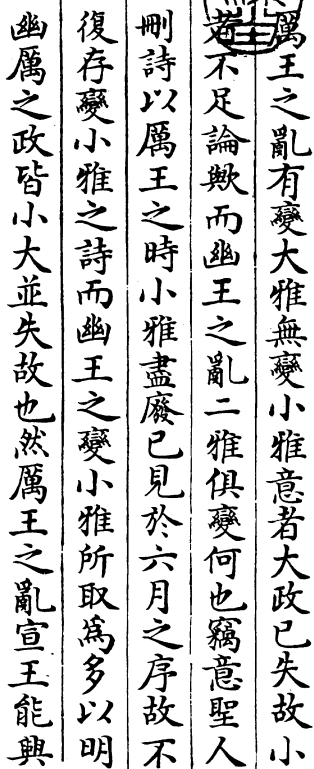 厲王之亂有變大雅無變小雅意者大政已失故小
者不足論歟而幽王之亂二雅俱變何也竊意聖人
刪詩以厲王之時小雅盡廢已見於六月之序故不
復存變小雅之詩而幽王之變小雅所取為多以明
幽厲之政皆小大並失故也然厲王之亂宣王能興